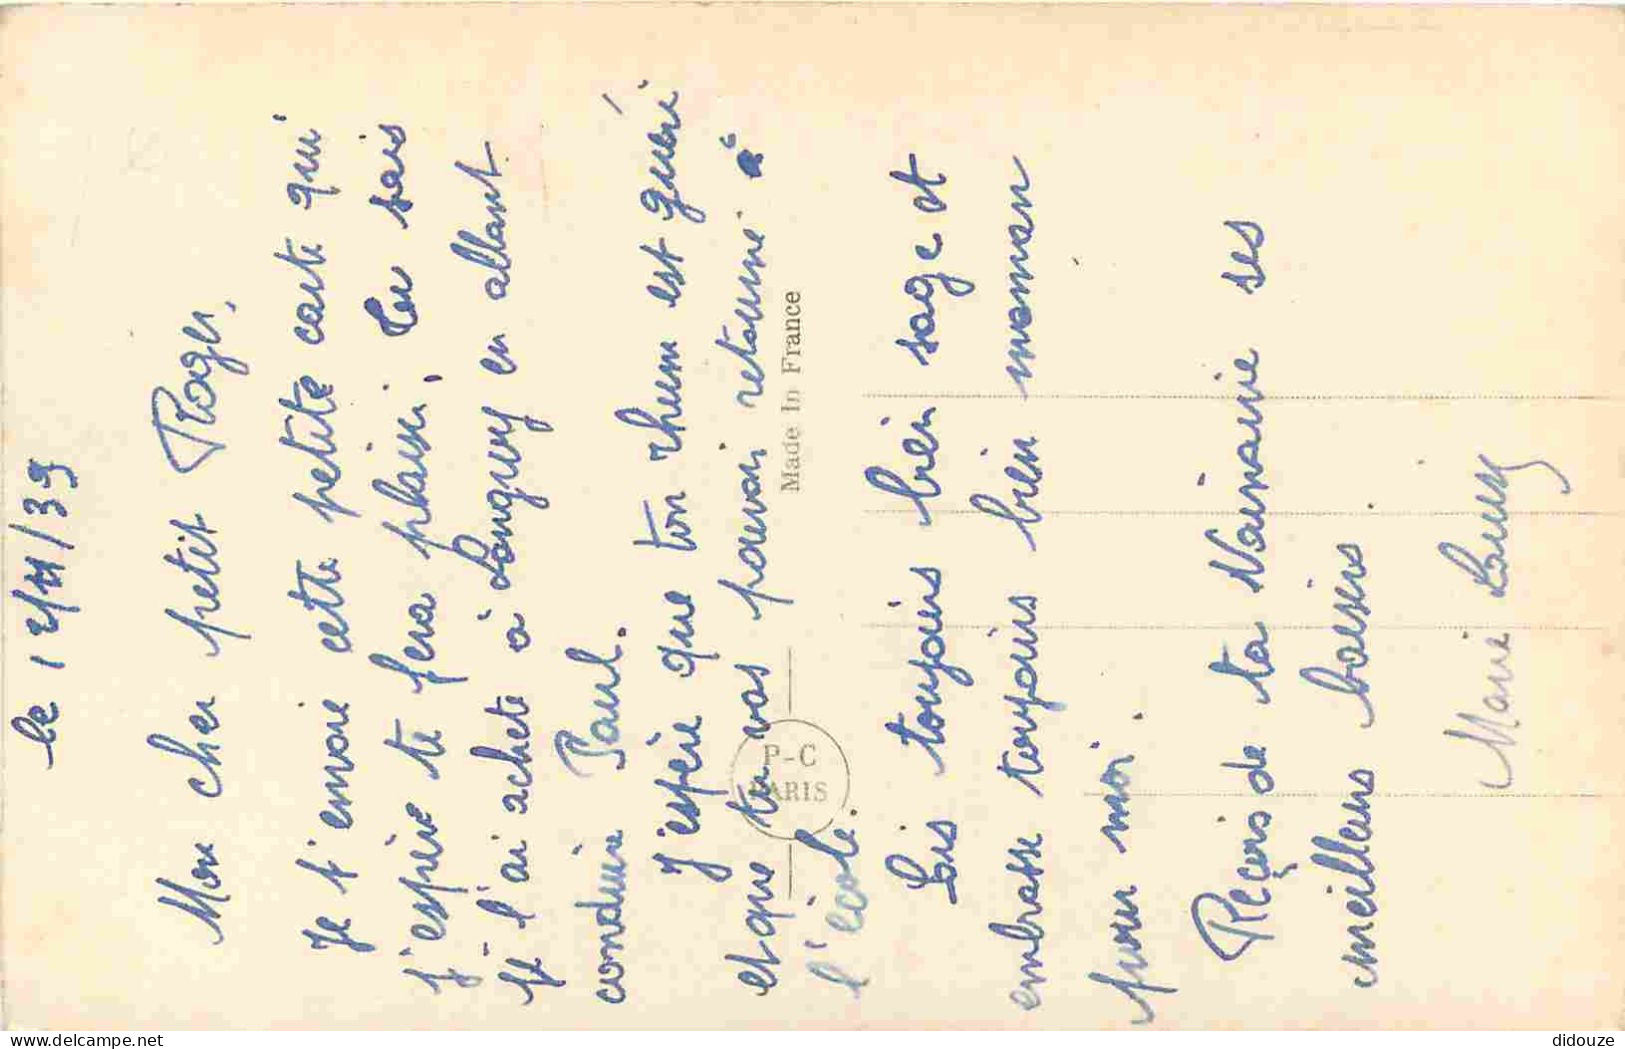 le 12/11/39
Mon cher petit Roger,
Je t'envoie cette petite carte qui
j'espère te fera plaisir. Tu sais
je l'ai acheté à Longuey en allant
conduire Paul.
J'espère que ton rhum est guéri
et que tu vas pouvoir retourné à
l'école.
Sois toujours bien sage et
embrasse toujours bien maman
pour moi.
Reçois de ta Marraine ses
meilleurs baisers
Marie Louise
Made In France
P-C
PARIS
www.delcampe.net
didouze